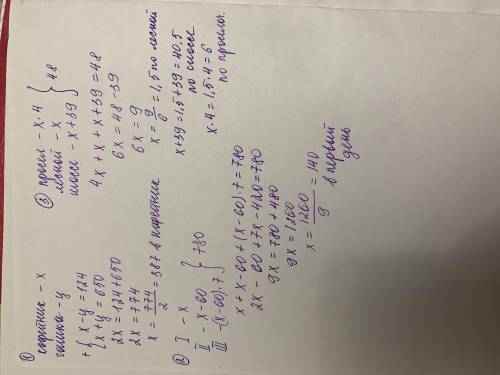 ①
кофейник – x
чашка – y
+ { x – y = 124
{ x + y = 650
2x = 124 + 650
2x = 774
x = 774/2 = 387 в кофейник
② I – x
II – x – 60
III – (x – 60) · 7 } 780
x + x – 60 + (x – 60) · 7 = 780
2x – 60 + 7x – 420 = 780
9x = 780 + 480
9x = 1260
x = 1260/9 = 140
в первый
день
③ просел – x · 4
лесной – x
шоссе – x + 39 } 48
4x + x + x + 39 = 48
6x = 48 – 39
6x = 9
x = 9/6 = 1,5 по лесной
x + 39 = 1,5 + 39 = 40,5
по шоссе
x · 4 = 1,5 · 4 = 6
по просёлоч.